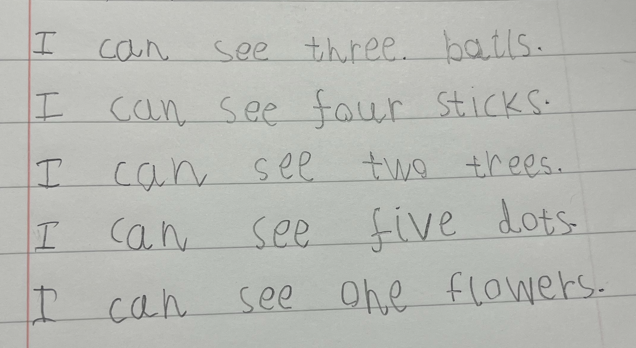 I can see three. balls.
I can see four sticks.
I can see two trees.
I can see five dots.
I can see one flowers.